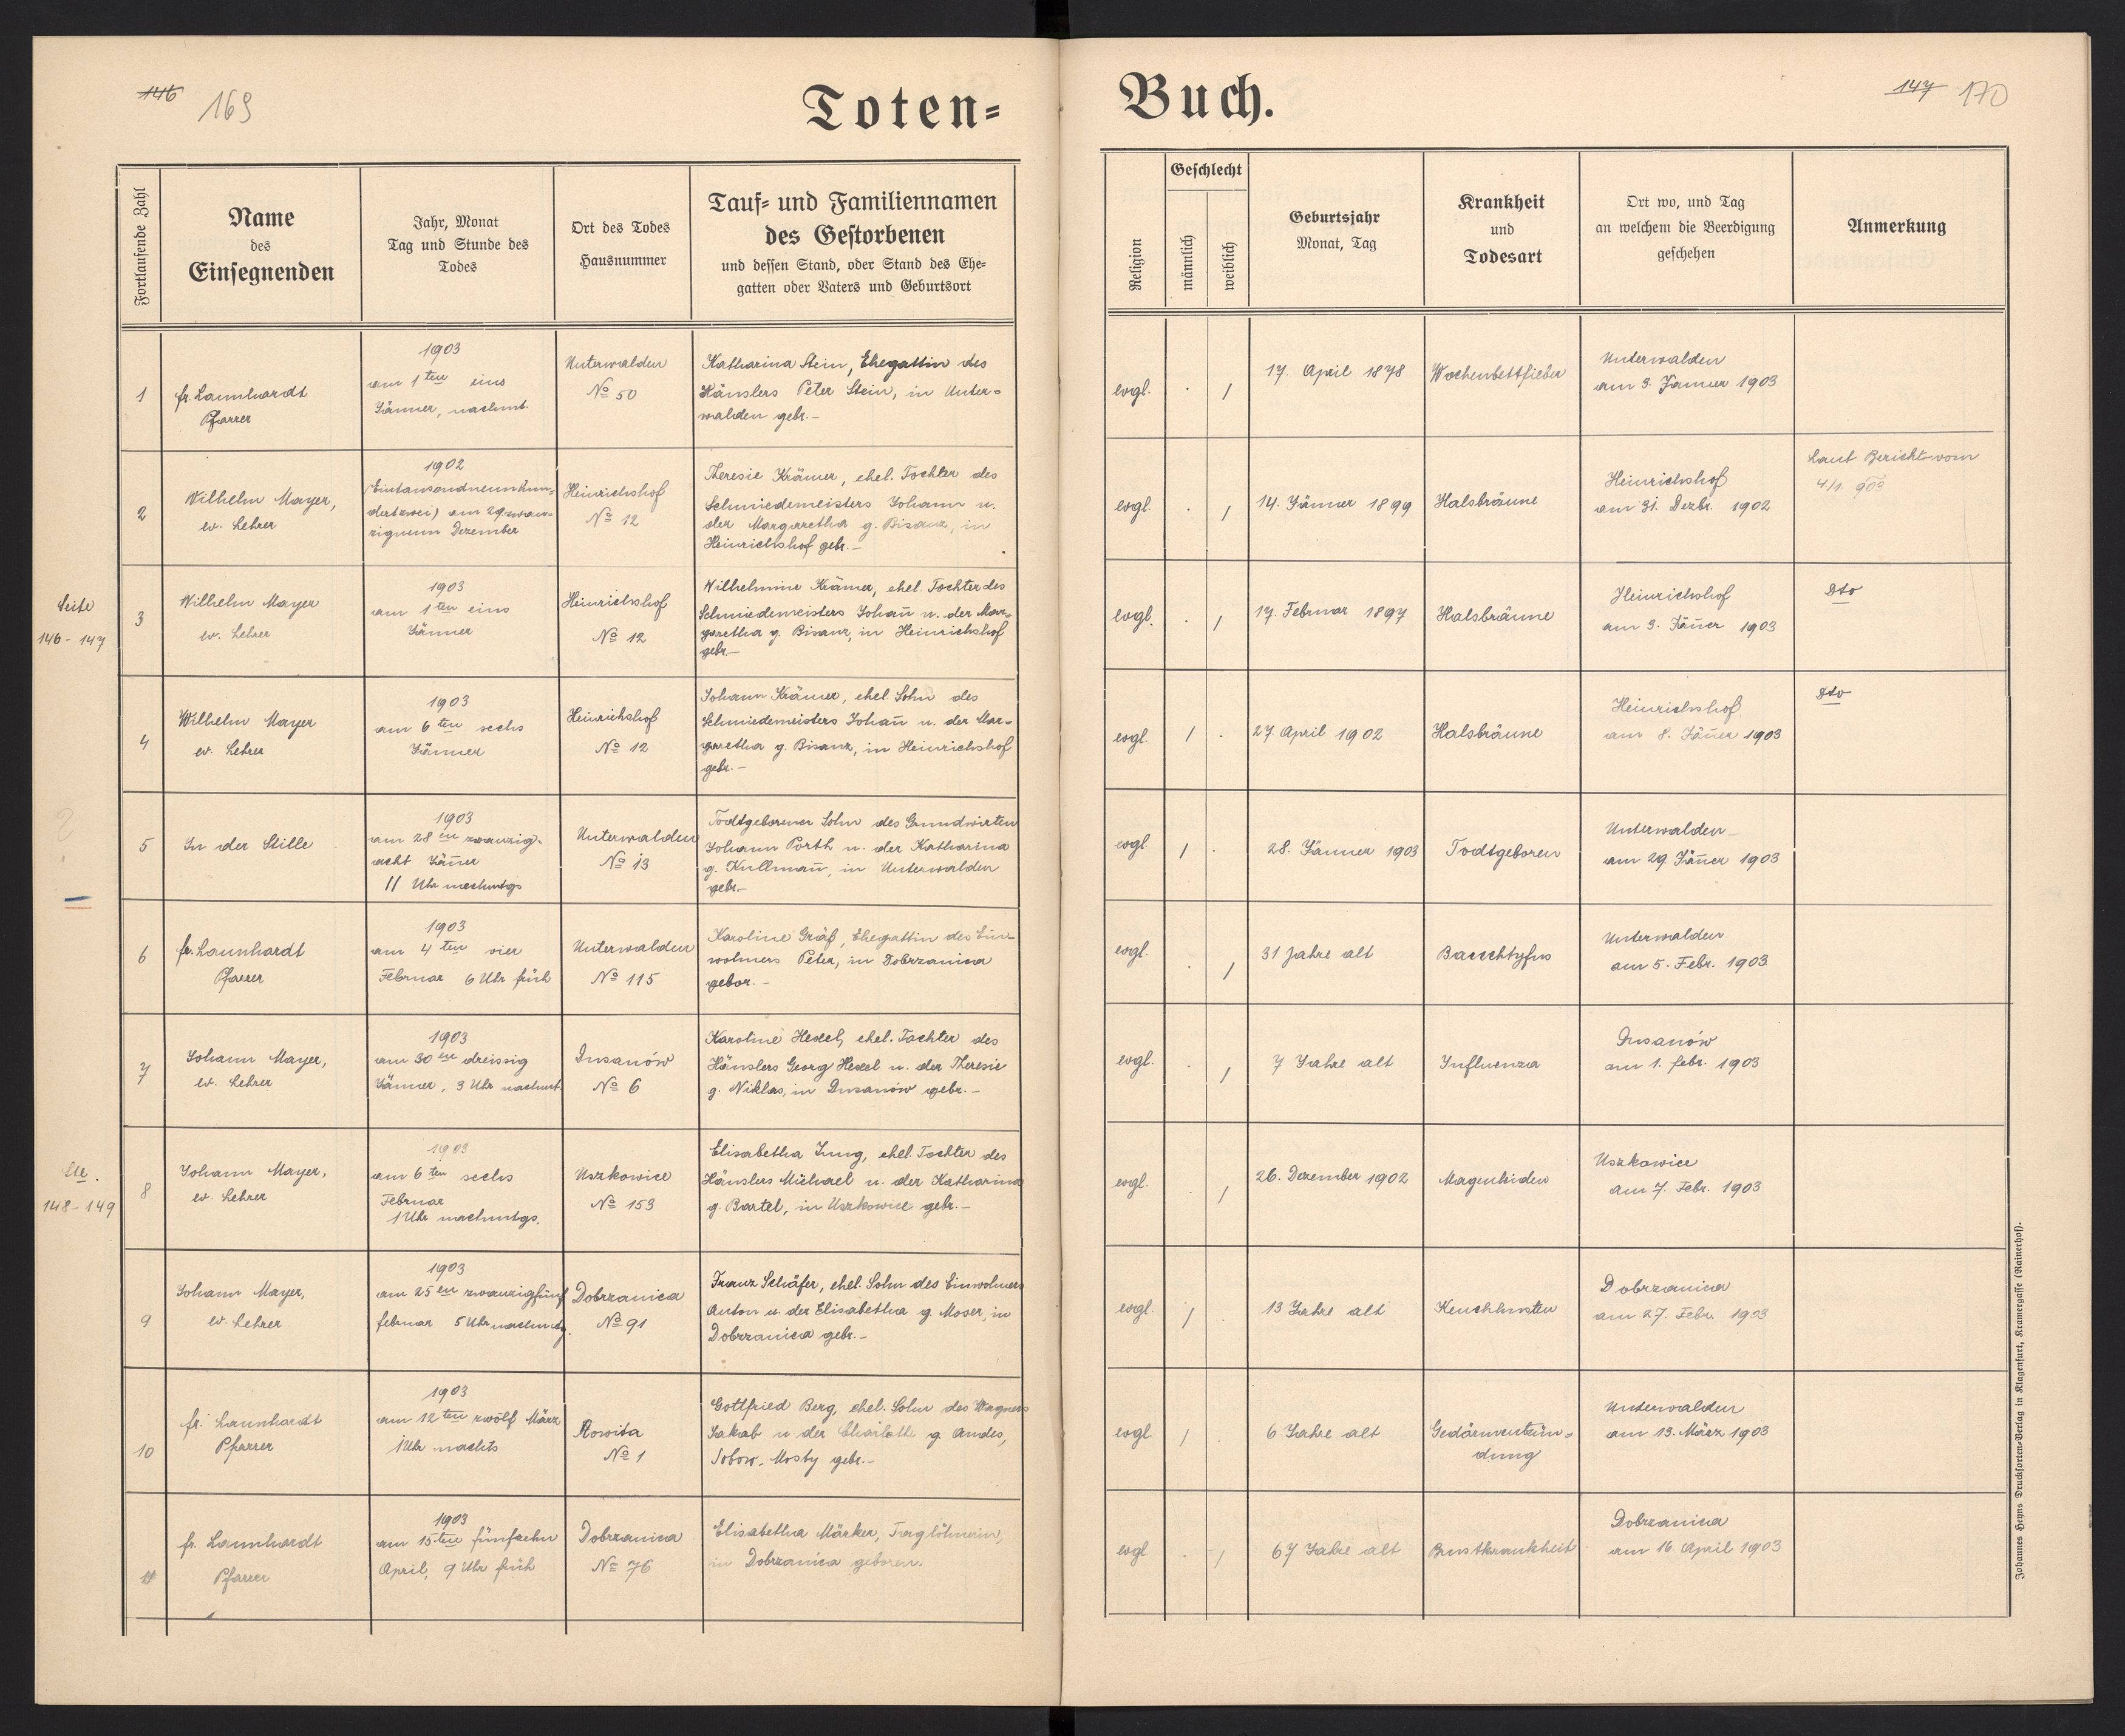 146 169
Toten=
Fortlaufende Zahl
Name
des
Einsegnenden
Jahr, Monat
Tag und Stunde des
Todes
Ort des Todes
Hausnummer
Tauf= und Familiennamen
des Gestorbenen
und dessen Stand, oder Stand des Ehe=
gatten oder Vaters und Geburtsort
1
fr. Launhardt
Pfarrer
1903
am 1ten eins
Jänner, nachmt.
Unterwalden
No 50
Katharina Stein, Ehegattin des
Häuslers Peter Stein, in Unter=
walden gebr.-
2
Wilhelm Mayer,
ev. Lehrer
1902
(Eintausendneunhun=
dertzwei) am 29 zwan=
zigneun Dezember
Heinrichshof
No 12
Theresie Krämer, ehel. Tochter des
Schmiedemeisters Johann u.
der Margaretha g. Bisanz, in
Heinrichshof gebr.-
Seite
146-147
3
Wilhelm Mayer
ev. Lehrer
1903
am 1ten eins
Jänner
Heinrichshof
No 12
Wilhelmine Krämer, ehel. Tochter des
Schmiedemeisters Johan̄ u. der Mar=
garetha g. Bisanz, in Heinrichshof
gebr.-
4
Wilhelm Mayer
ev. Lehrer
1903
am 6ten sechs
Jänner
Heinrichshof
No 12
Johann Krämer, ehel. Sohn des
Schmiedemeisters Johan̄ u. der Mar=
garetha g. Bisanz, in Heinrichshof
gebr.-
?
5
In der Stille
1903
am 28en zwanzig-
acht Jän̄er
11 Uhr nachmtgs
Unterwalden
No 13
Todtgeborener Sohn des Grundwirten
Johann Porth u. der Katharina
g. Kullman̄, in Unterwalden
gebr.-
6
fr. Launhardt
Pfarrer
1903
am 4ten vier
Februar 6 Uhr früh
Unterwalden
No 115
Karoline Gräf, Ehegattin des Ein=
wohners Peter, in Dobrzanica
gebor.-
7
Johann Mayer,
ev. Lehrer
1903
am 30en dreissig
Jänner, 3 Uhr nachmt.
Dusanów
No 6
Karoline Hexel, ehel. Tochter des
Häuslers Georg Hexel u. der Theresie
g. Niklas, in Dusanów gebr.-
148-149
8
Johann Mayer,
ev. Lehrer
1903
am 6ten sechs
Februar
1 Uhr nachmtgs.
Uszkowice
No 153
Elisabetha Jung, ehel. Tochter des
Häuslers Michael u. der Katharina
g. Bartel, in Uszkowice gebr.-
9
Johann Mayer,
ev. Lehrer
1903
am 25en zwanzigfünf
februar 5 Uhr nachmtg.
Dobrzanica
No 91
Franz Schäfer, ehel. Sohn des Einwohners
Anton u. der Elisabetha g. Moser, in
Dobrzanica gebr.-
10
fr. Launhardt
Pfarrer
1903
am 12ten zwölf März
1 Uhr nachts
No 1
Gottfried Berg, ehel. Sohn des Wagners
Jakob u. der Charlotte g. Andes,
Mosty gebr.-
11
fr. Launhardt
Pfarrer
1903
am 15ten fünfzehn
April, 9 Uhr früh
Dobrzanica
No 76
Elisabetha Märker, Taglöhnerin,
in Dobrzanica geboren.
Buch.
147 170
Religion
Geschlecht
männlich
weiblich
Geburtsjahr
Monat, Tag
Krankheit
und
Todesart
Ort wo, und Tag
an welchem die Beerdigung
geschehen
Anmerkung
evgl. . 1
17. April 1878
Wochenbettfieber
Unterwalden
am 3. Jänner 1903
evgl. . 1
14. Jänner 1899
Halsbräune
Heinrichshof
am 31. Dezbr. 1902
Laut Bericht vom
evgl. . 1
17 Februar 1897
Halsbräune
Heinrichshof
am 3. Jän̄er 1903
dto
evgl. 1 .
27 April 1902
Halsbräune
Heinrichshof
am 8. Jän̄er 1903
dto
evgl 1 .
28. Jänner 1903
Todtgeboren
Unterwalden
am 29 Jän̄er 1903
evgl. . 1
31 Jahre alt
Bauchtyfus
Unterwalden
am 5. Febr. 1903
evgl. . 1
7 Jahre alt
Influenza
Dusanów
am 1. febr. 1903
evgl. . 1
26. Dezember 1902
Magenleiden
Uszkowice
am 7. Febr. 1903
evgl. 1 .
13 Jahre alt
Keuchhusten
Dobrzanica
am 27. Febr. 1903
evgl 1 .
6 Jahre alt
Gedärmentzün=
dung
Unterwalden
am 13. März 1903
evgl . 1
67 Jahre alt
Brustkrankheit
Dobrzanica
am 16. April 1903
Johannes Heyns Drucksorten-Verlag in Klagenfurt, Kramergasse (Rainerhof).